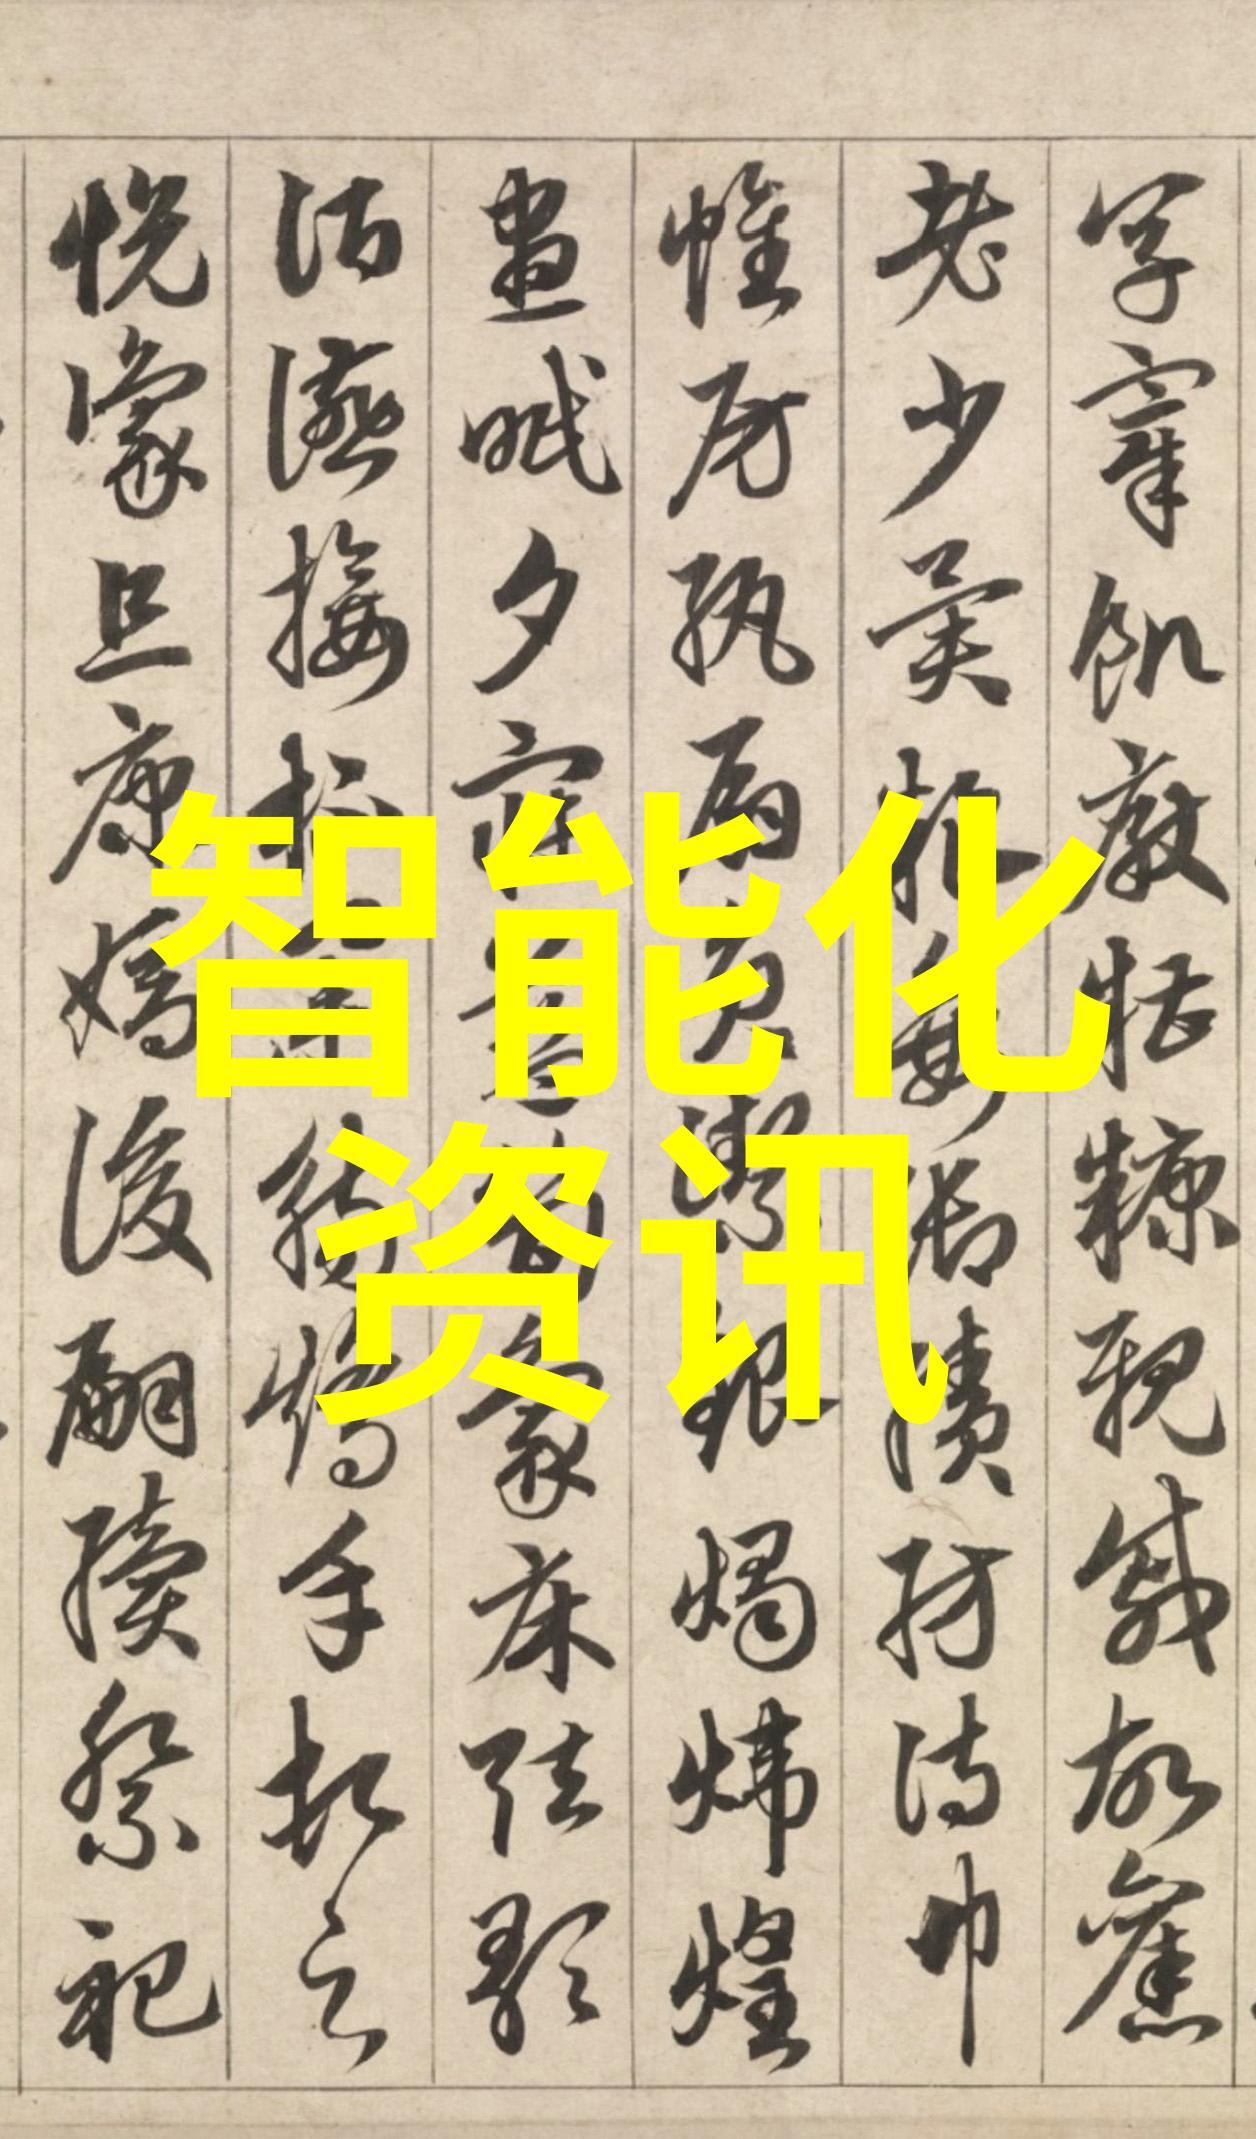 智能化
资讯
烹宰飢厭糟糠親戚故舊
老少異粮妾御績紡侍巾
帷房紈扇圓潔銀燭煒煌
晝眠夕寐藍笋象床弦歌
酒讌接杯舉觴矯手頓足
悅豫且康嫡後嗣續祭祀